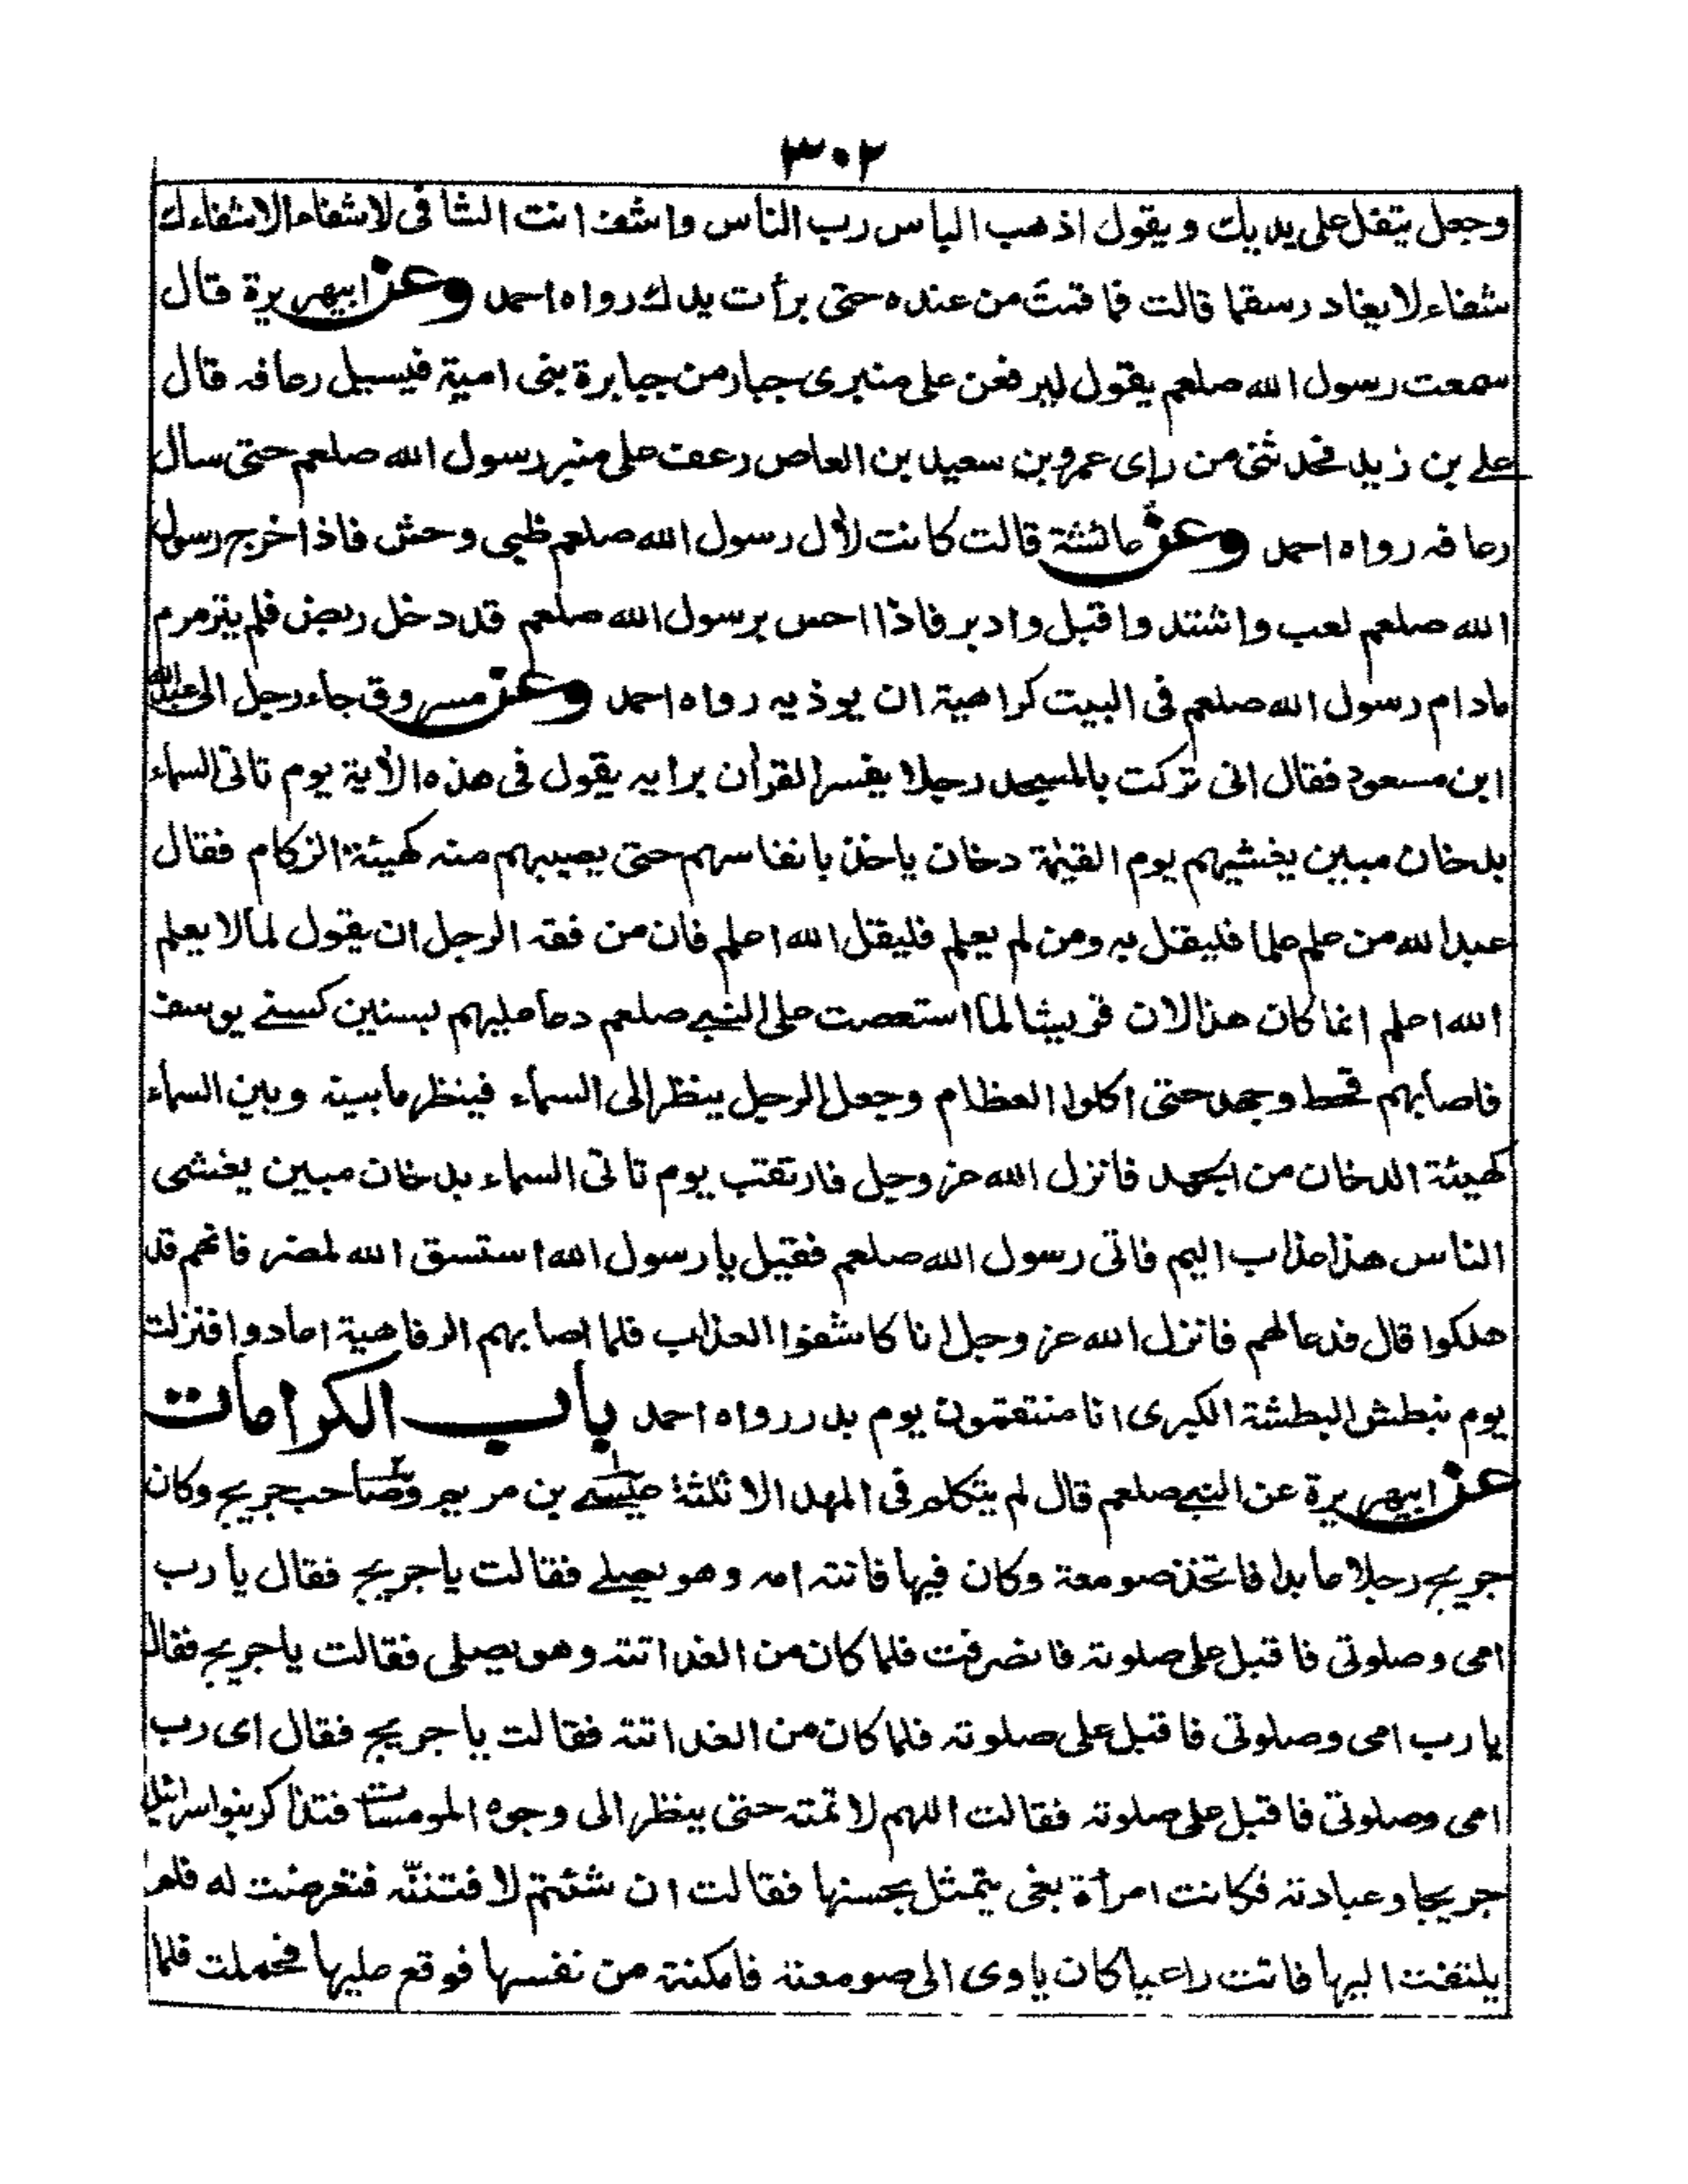 ٣٠٢
وجعل يتفل على يديك ويقول اذهب الباس رب الناس واشف انت الشافى لاشفاء الاشفاءك
شفاء لا يغادر سقما قالت فما قمت من عنده حتى برأت يدك رواه احمد وعن ابيهريرة قال
سمعت رسول الله صلعم يقول ليرفعن على منبرى جبار من جبابرة بنى امية فيسيل رعافه قال
على بن زيد فحدثنى من راى عمرو بن سعيد بن العاص رعف على منبر رسول الله صلعم حتى سال
رعافه رواه احمد وعن عائشة قالت كانت لأل رسول الله صلعم ظبى وحش فاذا خرج رسول
الله صلعم لعب واشتد واقبل وادبر فاذا احس برسول الله صلعم قد دخل ربض فلم يترمرم
مادام رسول الله صلعم فى البيت كراهية ان يوذيه رواه احمد وعن مسروق جاء رجل الى عبدالله
ابن مسعود فقال انى تركت بالمسجد رجلا يفسر القرأن برايه يقول فى هذه الأية يوم تاتى السماء
بدخان مبين يغشيهم يوم القيمة دخان ياخذ بانفاسهم حتى يصيبهم منه كهيئة الزكام فقال
عبد الله من علم علما فليقل به ومن لم يعلم فليقل الله اعلم فان من فقه الرجل ان يقول لما لا يعلم
الله اعلم انما كان هذا لان قريشا لما استعصت على النبى صلعم دعا عليهم بسنين كسنے يوسف
فاصابهم قحط وجهد حتى اكلوا العظام وجعل الرجل ينظر الى السماء فينظر مابينه وبين السماء
كهيئة الدخان من الجهد فانزل الله عز وجل فارتقب يوم تاتى السماء بدخان مبين يغشى
الناس هذا عذاب اليم فاتى رسول الله صلعم فقيل يا رسول الله استسق الله لمضر فانهم قد
هلكوا قال فدعا لهم فانزل الله عز وجل انا كاشفوا العذاب فلما اصابهم الرفاهية عادوا فنزلت
يوم نبطش البطشة الكبرى انا منتقمون يوم بدر رواه احمد باب الكرامات
عن ابيهريرة عن النبى صلعم قال لم يتكلم فى المهد الا ثلثة عيسے بن مريم وصاحب جريج وكان
جريج رجلا عابدا فاتخذ صومعة وكان فيها فاتته امه وهو يصلے فقالت يا جريج فقال يا رب
امى وصلوتى فاقبل على صلوته فانصرفت فلما كان من الغد اتته وهو يصلى فقالت يا جريج فقال
يا رب امى وصلوتى فاقبل على صلوته فلما كان من الغد اتته فقالت يا جريج فقال اى رب
امى وصلوتى فاقبل على صلوته فقالت اللهم لا تمته حتى ينظر الى وجوه المومسات فتذاكر بنو اسرائيل
جريجا وعبادته فكانت امرأة بغى يتمثل بحسنها فقالت ان شئتم لافتننه فتعرضت له فلم
يلتفت اليها فاتت راعيا كان ياوى الى صومعته فامكنته من نفسها فوقع عليها فحملت فلما